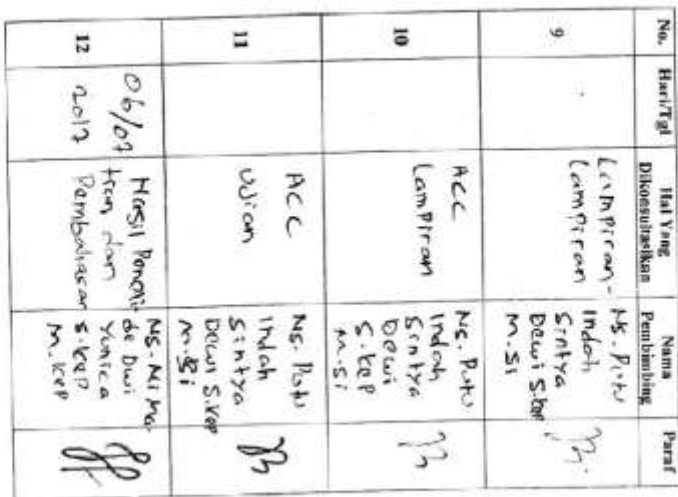 No. Hari/Tgl Hal Yang Dikonsultasikan Nama Pembimbing Paraf
9
Lampiran-
Lampiran
Ns. Putu
Indah
Sintya
Dewi S.kep
M.Si
10
ACC
Lampiran
Ns. Putu
Indah
Sintya
Dewi
S.kep
M.Si
11
ACC
Ujian
Ns. Putu
Indah
Sintya
Dewi S.kep
M.Si
12
06/07
2017
Hasil Peneli
tian dan
Pembahasan
Ns. Ni Ma
de Dwi
Yunica
S.kep
M.kep